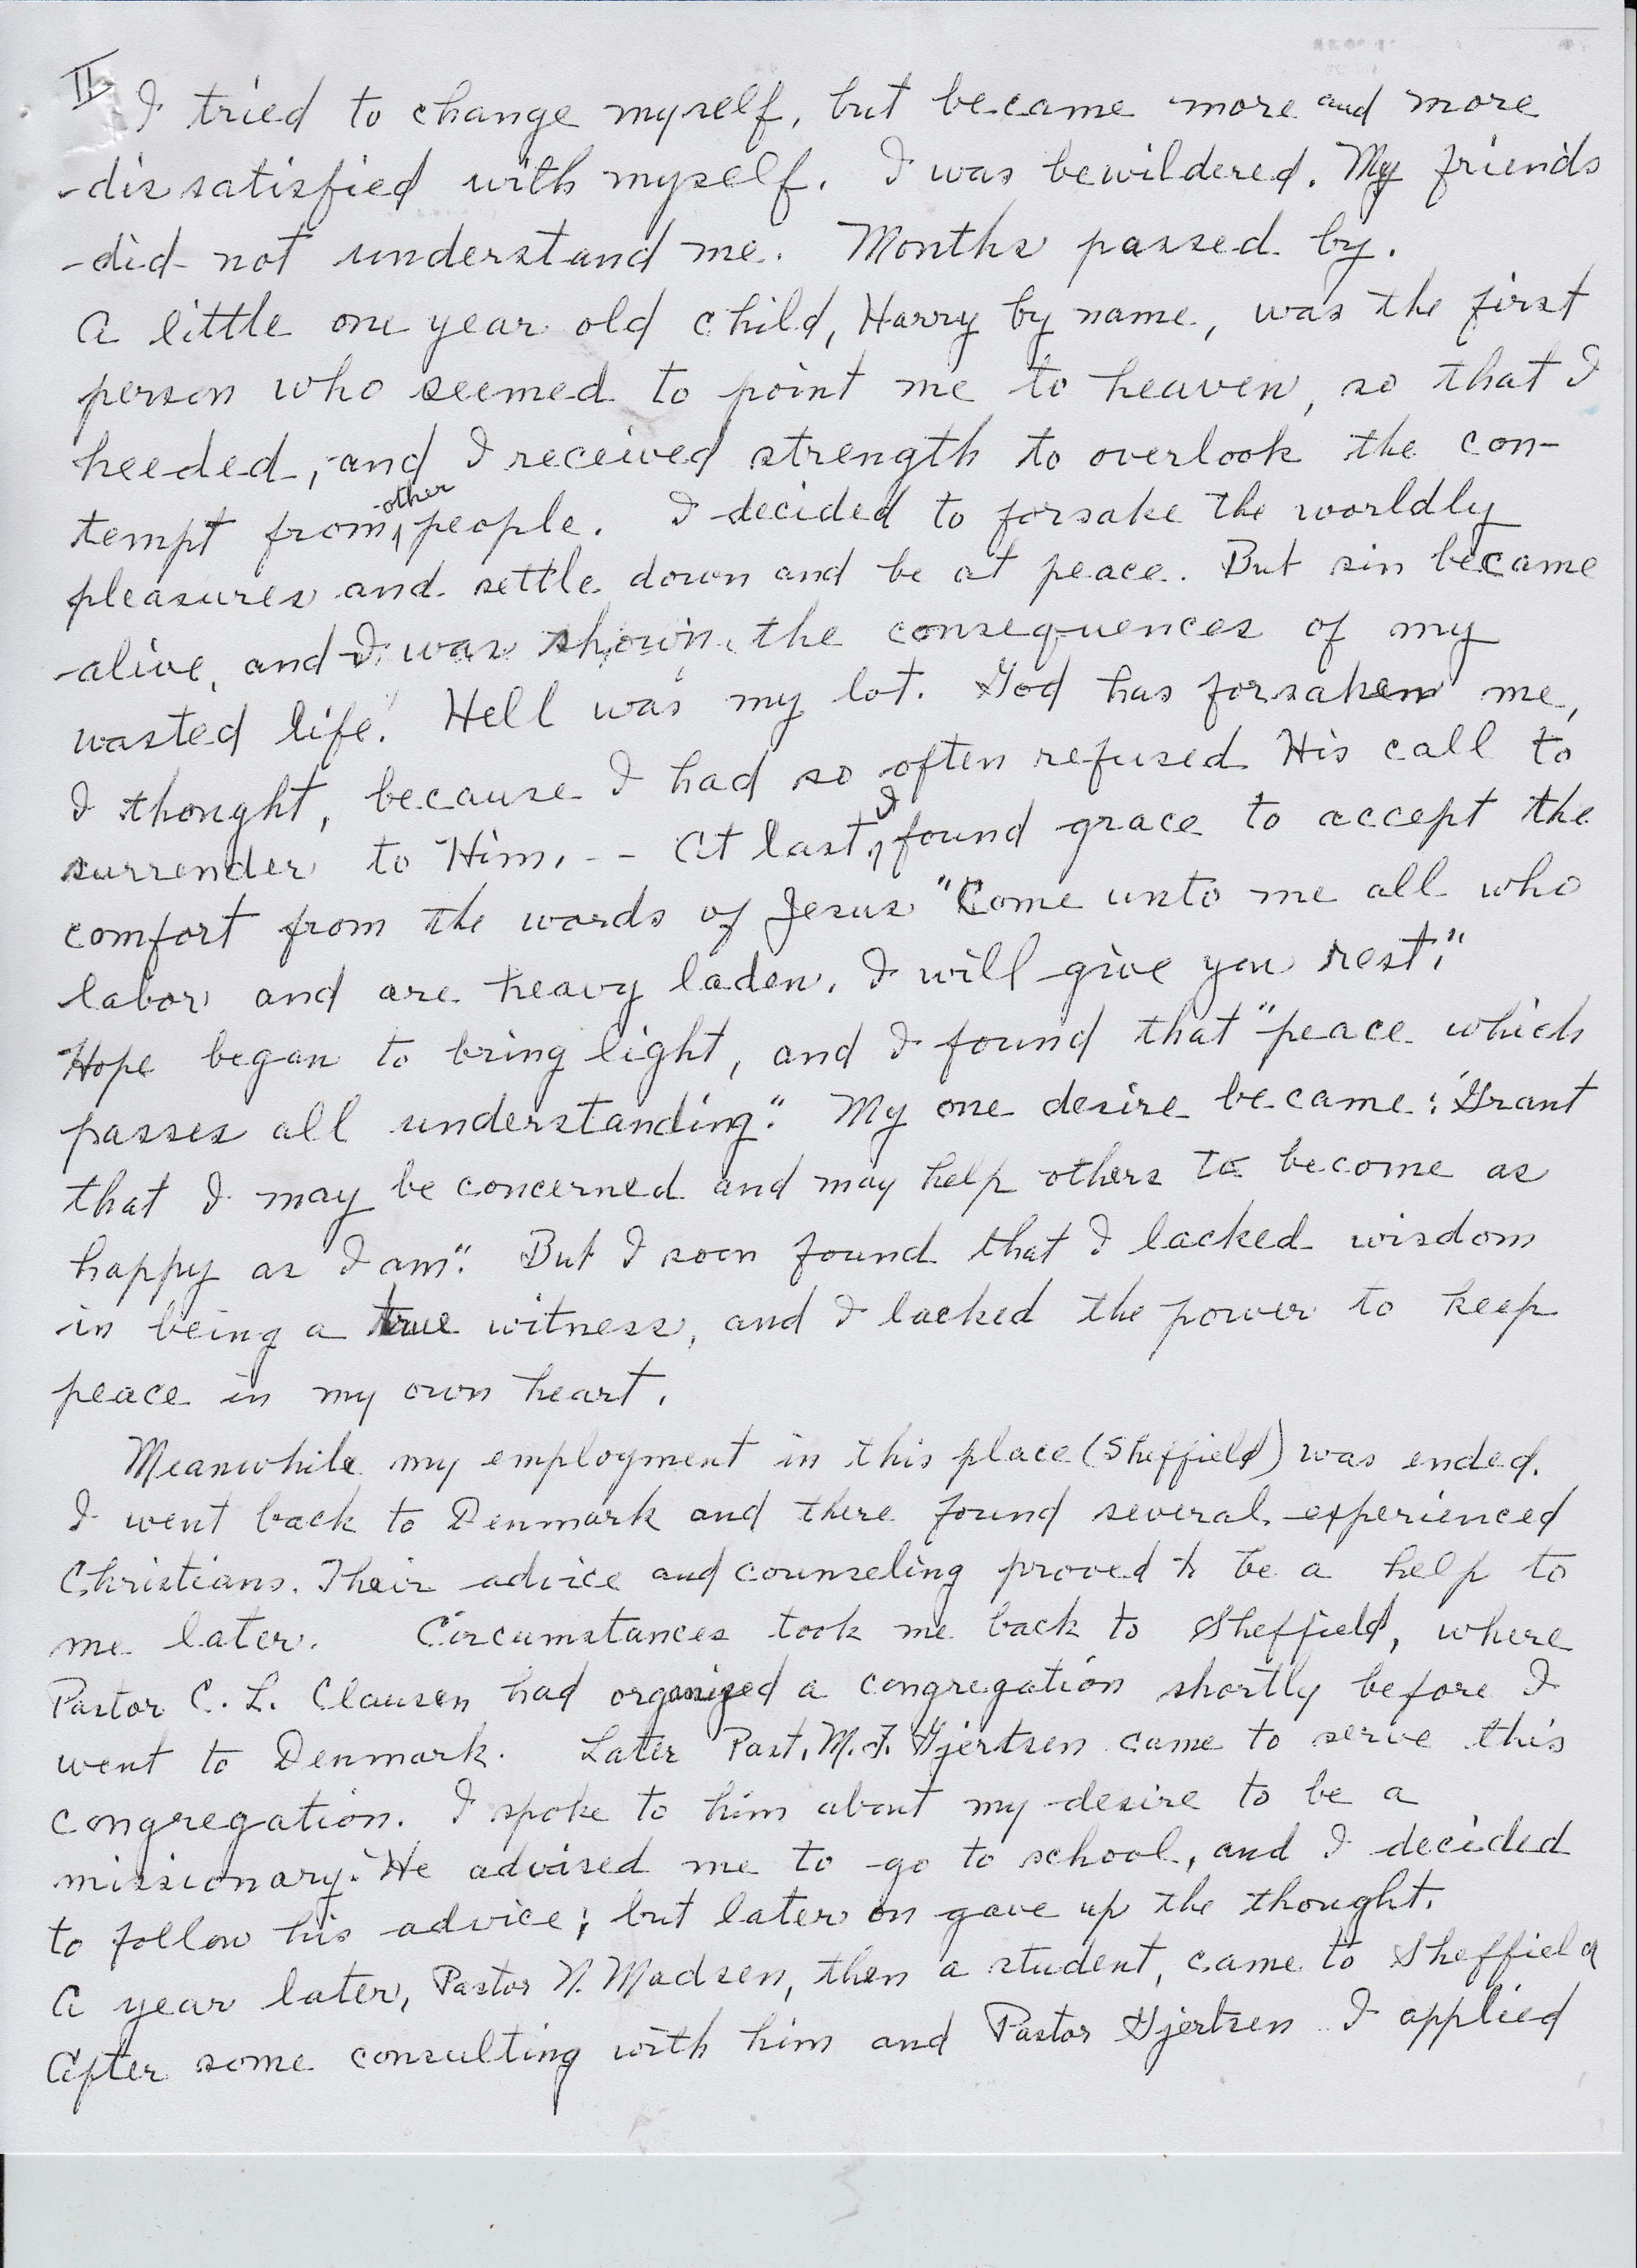 II
I tried to change myself, but became more and more
dissatisfied with myself. I was bewildered. My friends
did not understand me. Months passed by.
A little one year old child, Harry by name, was the first
person who seemed to point me to heaven, so that I
heeded, and I received strength to overlook the con-
tempt from other people. I decided to forsake the worldly
pleasures and settle down and be at peace. But sin became
alive, and I was shown the consequences of my
wasted life. Hell was my lot. God has forsaken me,
I thought, because I had so often refused His call to
surrender to Him. -- At last, I found grace to accept the
comfort from the words of Jesus "Come unto me all who
labor and are heavy laden, I will give you rest."
Hope began to bring light, and I found that "peace which
passes all understanding." My one desire became: "Grant
that I may be concerned and may help others to become as
happy as I am." But I soon found that I lacked wisdom
in being a true witness, and I lacked the power to keep
peace in my own heart.
Meanwhile my employment in this place (Sheffield) was ended.
I went back to Denmark and there found several experienced
Christians. Their advice and counseling proved to be a help to
me later. Circumstances took me back to Sheffield, where
Pastor C. L. Clausen had organized a congregation shortly before I
went to Denmark. Later Past. M. F. Gjertsen came to serve this
congregation. I spoke to him about my desire to be a
missionary. He advised me to go to school, and I decided
to follow his advice; but later on gave up the thought.
A year later, Pastor N. Madsen, then a student, came to Sheffield
After some consulting with him and Pastor Gjertsen I applied
3